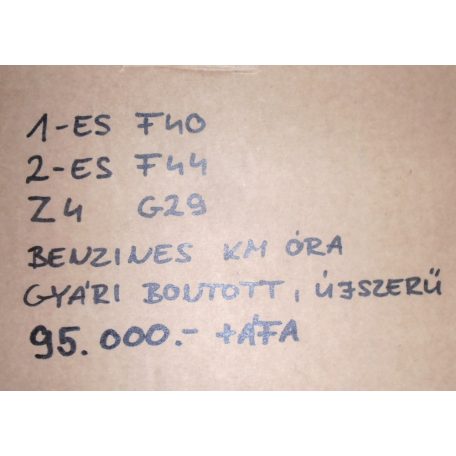 1-ES F40
2-ES F44
Z4 G29
BENZINES KM ÓRA
GYÁRI BONTOTT, ÚJSZERŰ
95.000.- +ÁFA